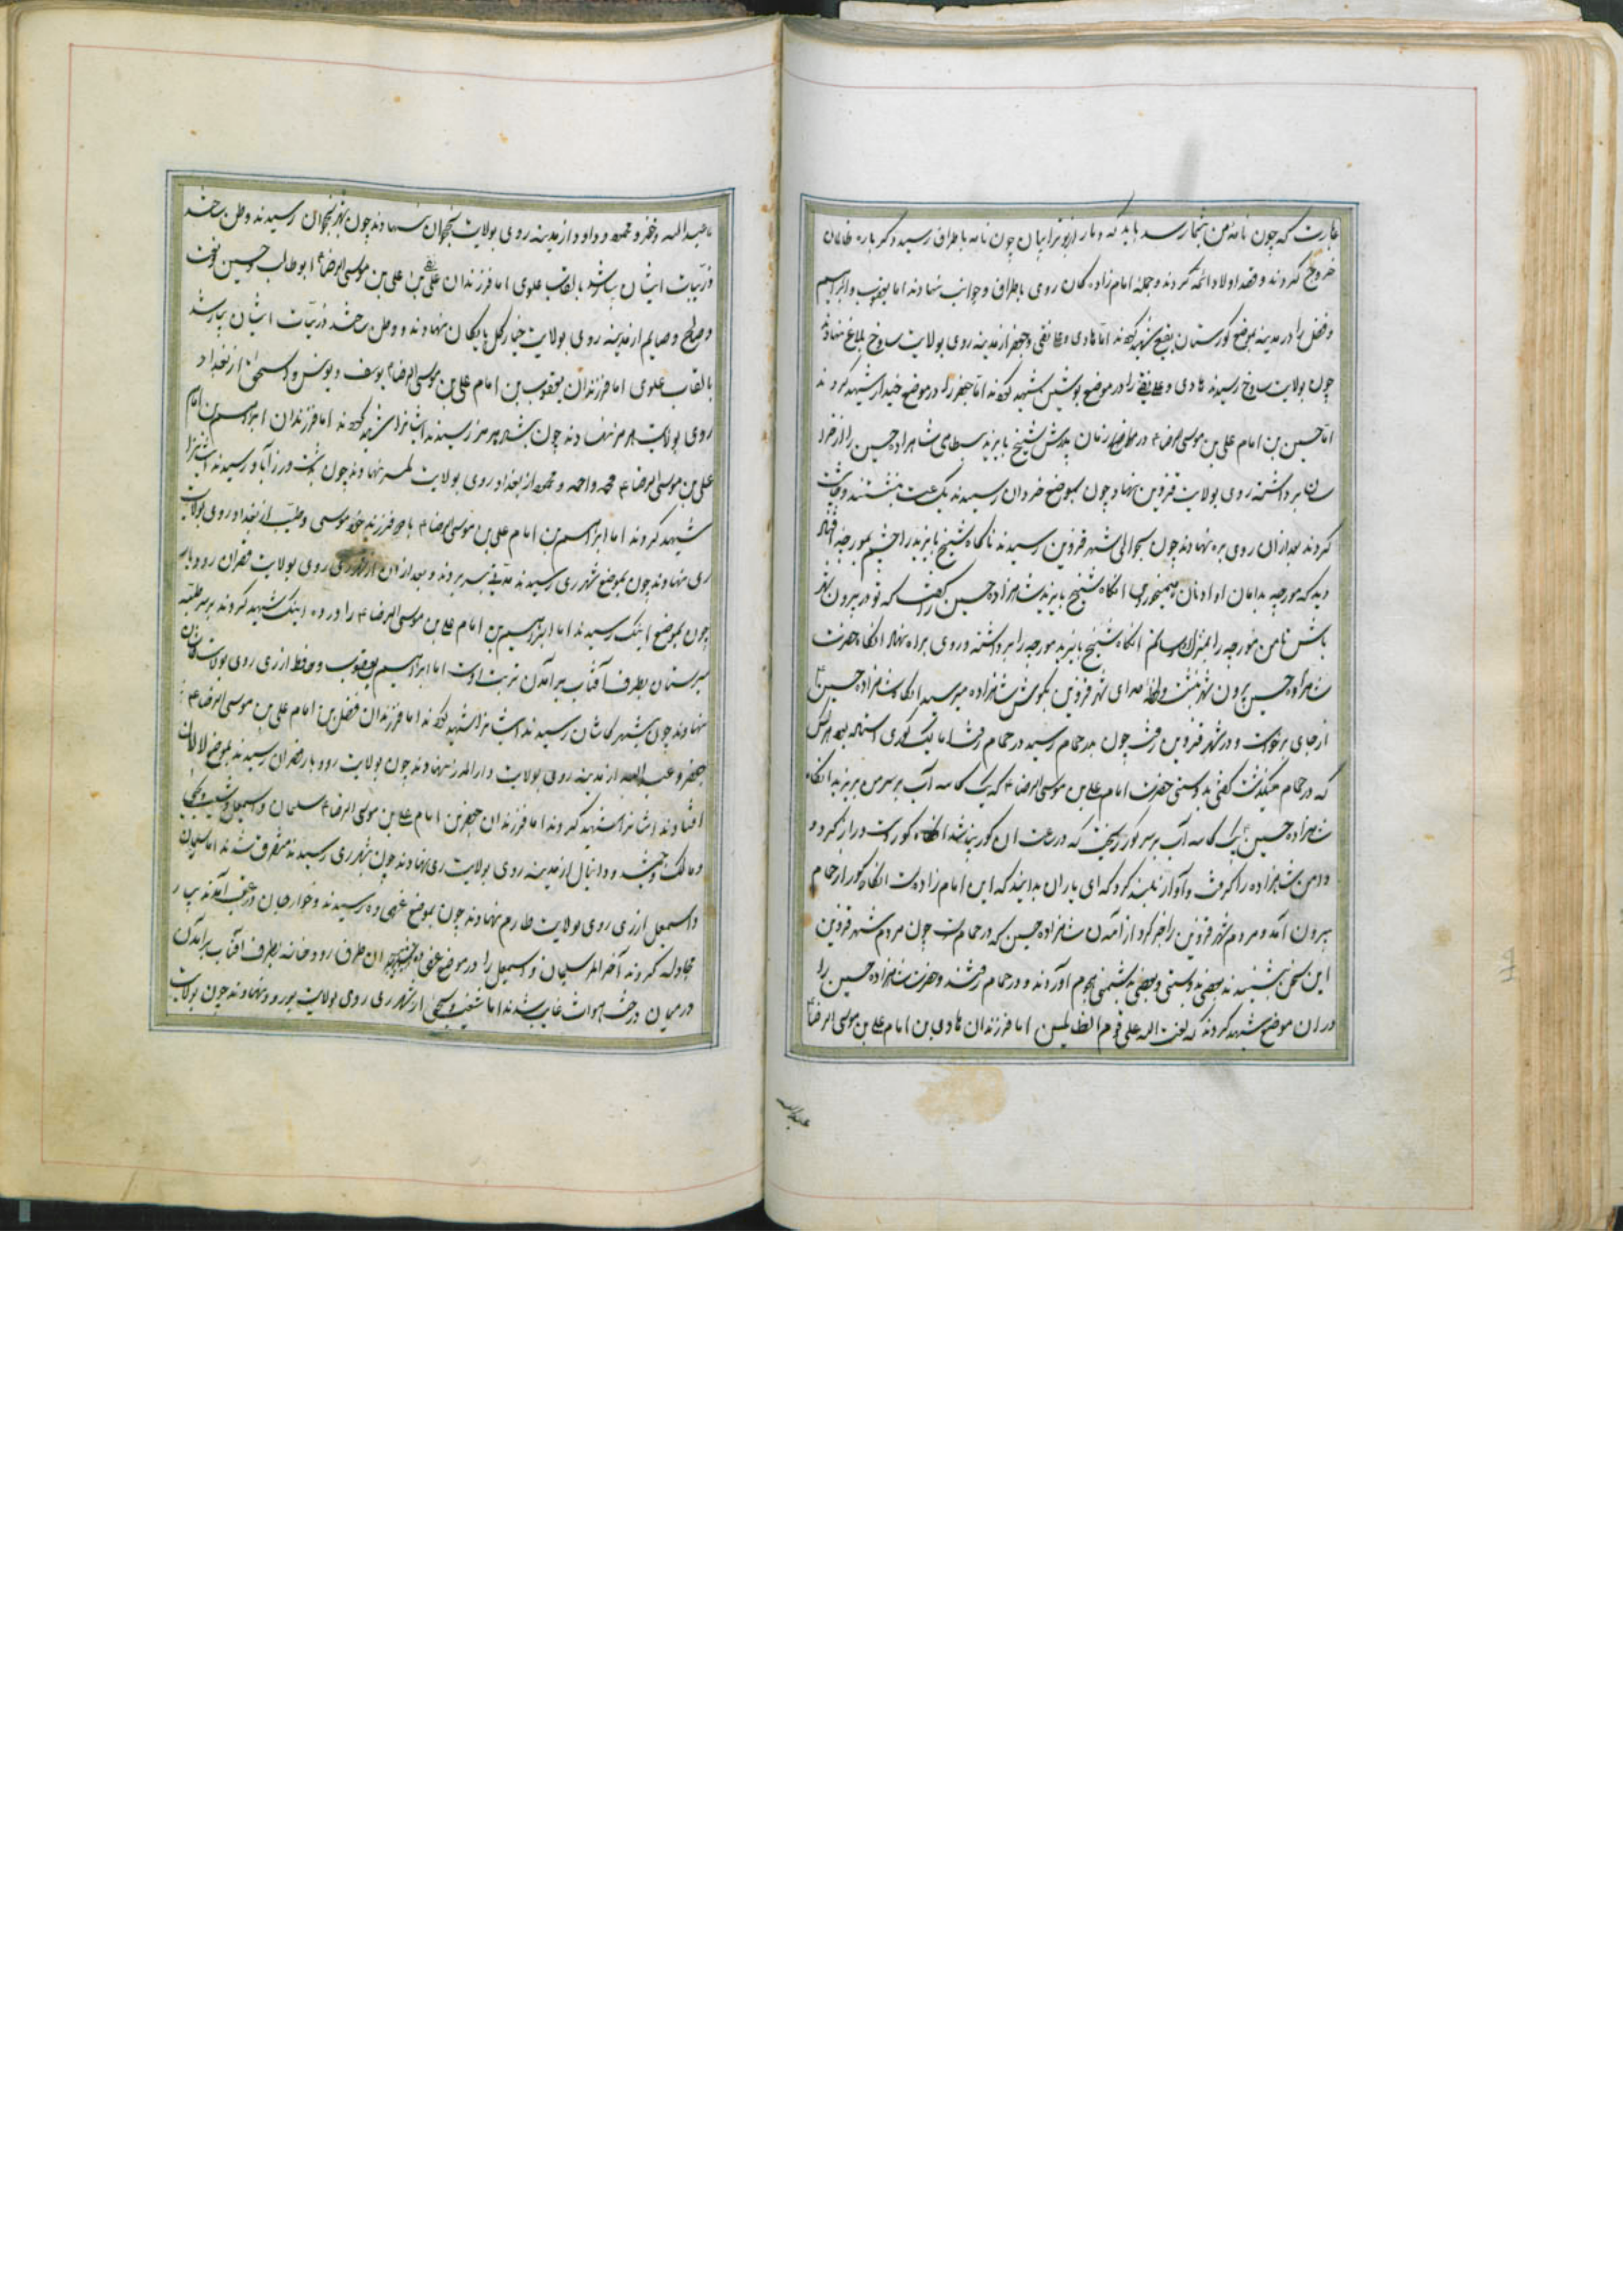 عبارت که چون نامه من بشما رسد باید که دمار از بوترابیان چون نامه باطراف رسید دگر باره ظالمان
خروج کردند و قصد اولاد ائمه کردند و جمله امام زاده کان روی باطراف و جوانب نهادند اما یعقوب و ابراهیم
و فضل را در مدینه بموضع کورستان بقیع شهید کردند اما هادی و علی نقی و جعفر از مدینه روی بولایت ساوخ بلاغ نهادند
چون بولایت ساوخ رسیدند هادی و علی نقی را در موضع بوشین شهید کردند اما جعفر را در موضع شهید کردند
اما حسین بن امام علی بن موسی الرضا ع در زمان شیخ بایزید بسطامی شاهزاده حسین را از خراسان
برداشته روی بولایت قزوین نهاد و چون بموضع خروان رسیدند یک ساعت بنشستند
کردند بعد از ان روی براه نهادند چون بحوالی شهر قزوین رسیدند ناکاه شیخ بایزید را چشم بمورچه افتاد
دید که مورچه بدامان او نان میخورد انکاه شیخ بایزید شاهزاده حسین را گفت که تو در بیرون شهر
باش تا من مورچه را بمنزل رسانم انکاه شیخ بایزید مورچه را برداشته و روی براه نهاد انکاه حضرت
شاهزاده حسین بیرون شهر نشست و صدای شهر قزوین بکوش شاهزاده میرسید انکاه شاهزاده حسین ع
از جای برخواست و در شهر قزوین رفت چون بدر حمام رسید در حمام رفت اما یک کوری استاده بود هر کس
که در حمام میگذشت گفتی بدوستی حضرت امام علی بن موسی الرضا ع که یک کاسه آب بر سر من بریزید انکاه
شاهزاده حسین یک کاسه آب بر سر کور ریخت که در ساعت ان کور بینا شد انکاه کور دست دراز کرد و
دامن شاهزاده را گرفت و آواز بلند کرد که ای یاران بدانید که این امام زاده است انکاه کور از حمام
بیرون آمد و مردم شهر قزوین را خبر کرد از آمدن شاهزاده حسین که در حمامست چون مردم شهر قزوین
این سخن بشنیدند بعضی بدوستی و بعضی بدشمنی هجوم آوردند و در حمام رفتند و حضرت شاهزاده حسین را
در ان موضع شهید کردند که لعنت الله علی قوم الظالمین اما فرزندان هادی بن امام علی بن موسی الرضا ع
عبدالله
عبدالله و جعفر و محمد و داود از مدینه روی بولایت نخجوان نهادند چون بشهر نخجوان رسیدند وطن ساختند
ذریات ایشان بسیار شد بالقاب علوی اما فرزندان علی نقی بن علی بن موسی الرضا ع ابوطالب و حسین
و صالح و صایم از مدینه روی بولایت کلپایکان نهادند و وطن ساختند ذریات ایشان بسیار شد
بالقاب علوی اما فرزندان یعقوب بن امام علی بن موسی الرضا ع یوسف و یونس و اسحق از بغداد
روی بولایت هرمز نهادند چون بشهر هرمز رسیدند ایشانرا شهید کردند اما فرزندان ابراهیم بن امام
علی بن موسی الرضا ع محمد و احمد و محمود از بغداد روی بولایت نهادند چون رسیدند ایشانرا
شهید کردند اما ابراهیم بن امام علی بن موسی الرضا ع با دو فرزند خود موسی و طیب از بغداد روی بولایت
ری نهادند چون بموضع شهر ری رسیدند مدتی بسر بردند و بعد از ان از شهر ری روی بولایت قصران رودبار
چون بموضع رسیدند اما ابراهیم بن امام علی بن موسی الرضا ع را در ده شهید کردند بر سر
بطرف آفتاب بر آمدن تربت اوست اما ابراهیم و یعقوب و حافظ از ری روی بولایت کاشان
نهادند چون بشهر کاشان رسیدند ایشانرا شهید کردند اما فرزندان فضل بن امام علی بن موسی الرضا ع
جعفر و عبدالله از مدینه روی بولایت دار المرز نهادند چون بولایت رودبار قصران رسیدند بموضع لالان
افتادند ایشانرا شهید کردند اما فرزندان جعفر بن امام علی بن موسی الرضا ع سلیمان و اسمعیل و شیث و یحیی
و مالک و جمشید و دانیال از مدینه روی بولایت ری نهادند چون بشهر ری رسیدند متفرق شدند اما سلیمان
و اسمعیل از ری روی بولایت طارم نهادند چون بموضع رسیدند و خوارجان در عقب آمدند
مجادله کردند آخر الامر سلیمان و اسمعیل را در موضع ان طرف رودخانه بطرف آفتاب بر آمدن
در میان درخت غایب شدند اما شیث و یحیی از شهر ری روی بولایت نهادند چون بولایت